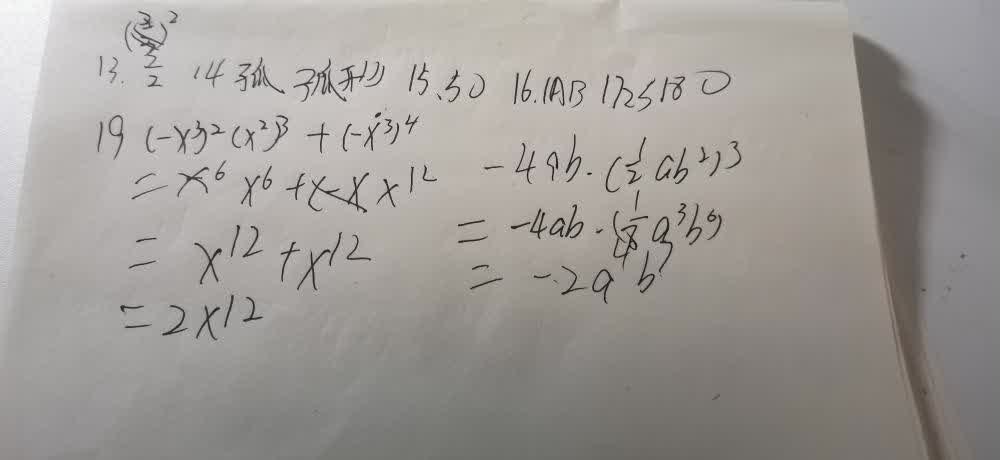 13. 2/2 14 弧 弧形 15.50 16.1AB 17.25 18 0
19 (-x³)² (x²)³ + (-x³)⁴
= x⁶ x⁶ + x¹²
= x¹² + x¹²
= 2x¹²
-4ab·(1/2 ab²)³
= -4ab·(1/8 a³b⁶)
= -2a b